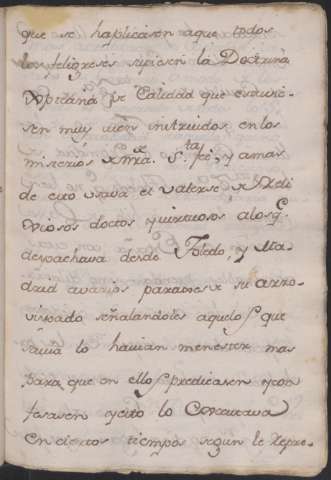 que se haplicasen aque todos
los feligreses supiesen la Doctrina
Xptiana de Calidad que estuvie-
sen muy vien instruidos en los
misterios de nra. Sta. fe, y amas
de esto usava el valerse de Reli
giosos doctos y virtuosos a los q.e
despachava desde Toledo, y Ma-
drid a varios parajes de su arzo-
vispado señalandoles aquellos que
savia lo havian menester mas
para que en ellos predicasen y con
fesasen y esto lo executava
en ciertos tiempos segun le repre-